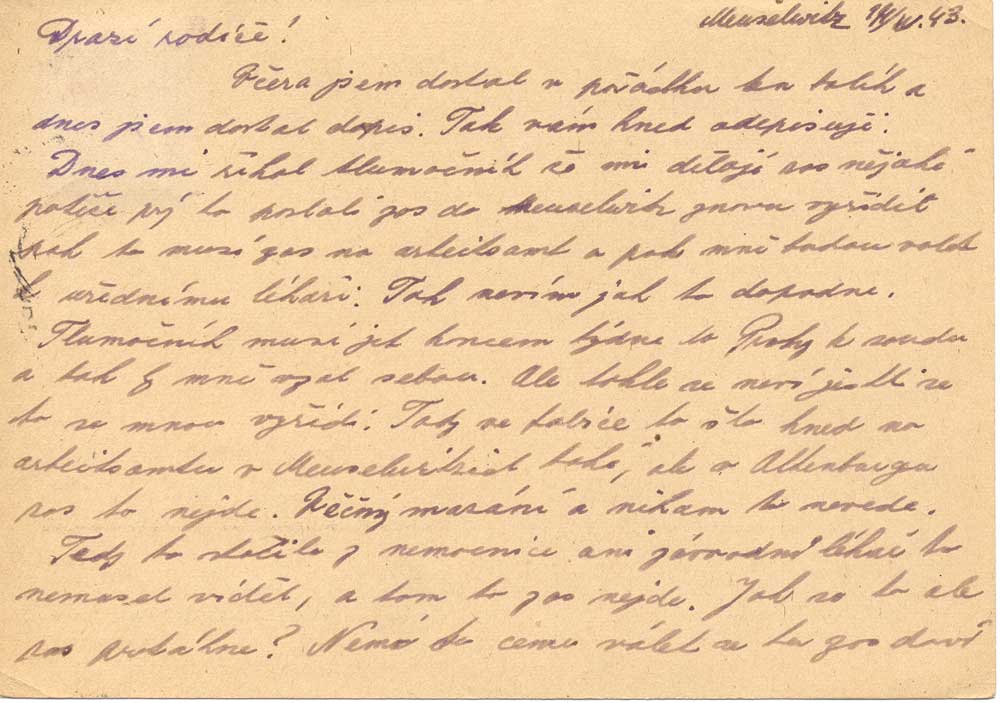 Meuselwitz 14/IV. 43.
Drazí rodiče!
Včera jsem dostal v pořádku ten balík a
dnes jsem dostal dopis. Tak vám hned odepisuji.
Dnes mi říkal tlumočník že mi dělají zas nějaké
potíže prý to poslali zas do Meuselwitz znova vyřídit
pak to musí zas na arbeitsamt a pak mně budou volat
k úřednímu lékaři. Tak nevím jak to dopadne.
Tlumočník musí jet koncem týdne do Prahy k soudu
a tak by mně vzal sebou. Ale tohle se neví jestli se
to se mnou vyřídí. Tady ve fabrice to šlo hned na
arbeitsamtu v Meuselwitzich také, ale v Altenburgu
zas to nejde. Věčný mazání a nikam to nevede.
Tady to stačilo z nemocnice ani závodní lékař to
nemusel vidět, a tam to zas nejde. Jak se to ale
zas protáhne? Nemá to cenu válet se tu zas další